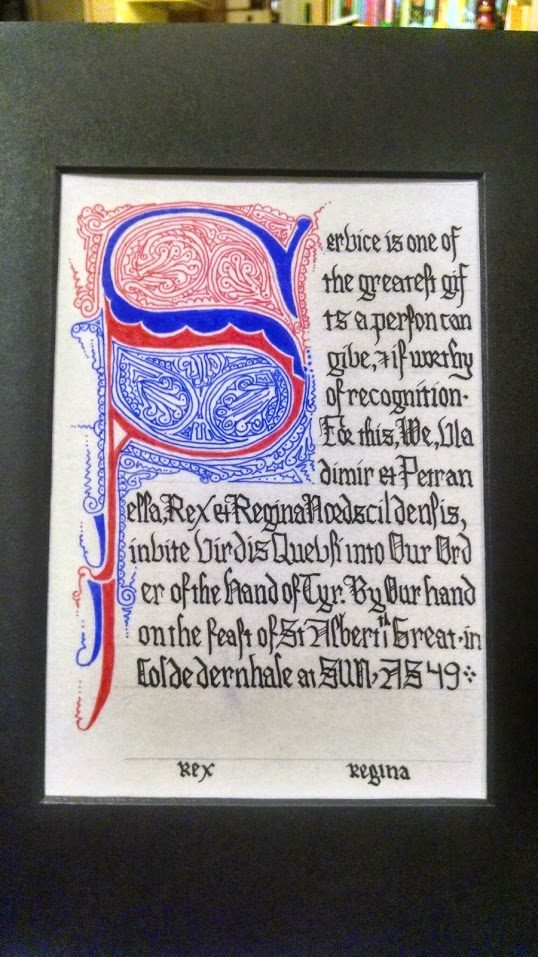 Service is one of
the greatest gif
ts a person can
give, & if worthy
of recognition.
For this, We, Vla
dimir et Petran
ella, Rex et Regina Nordscildensis,
invite Virdis into Our Ord
er of the Hand of Tyr. By Our hand
on the feast of St Albert the Great in
Coldedernhale at SUN, AS 49
Rex Regina